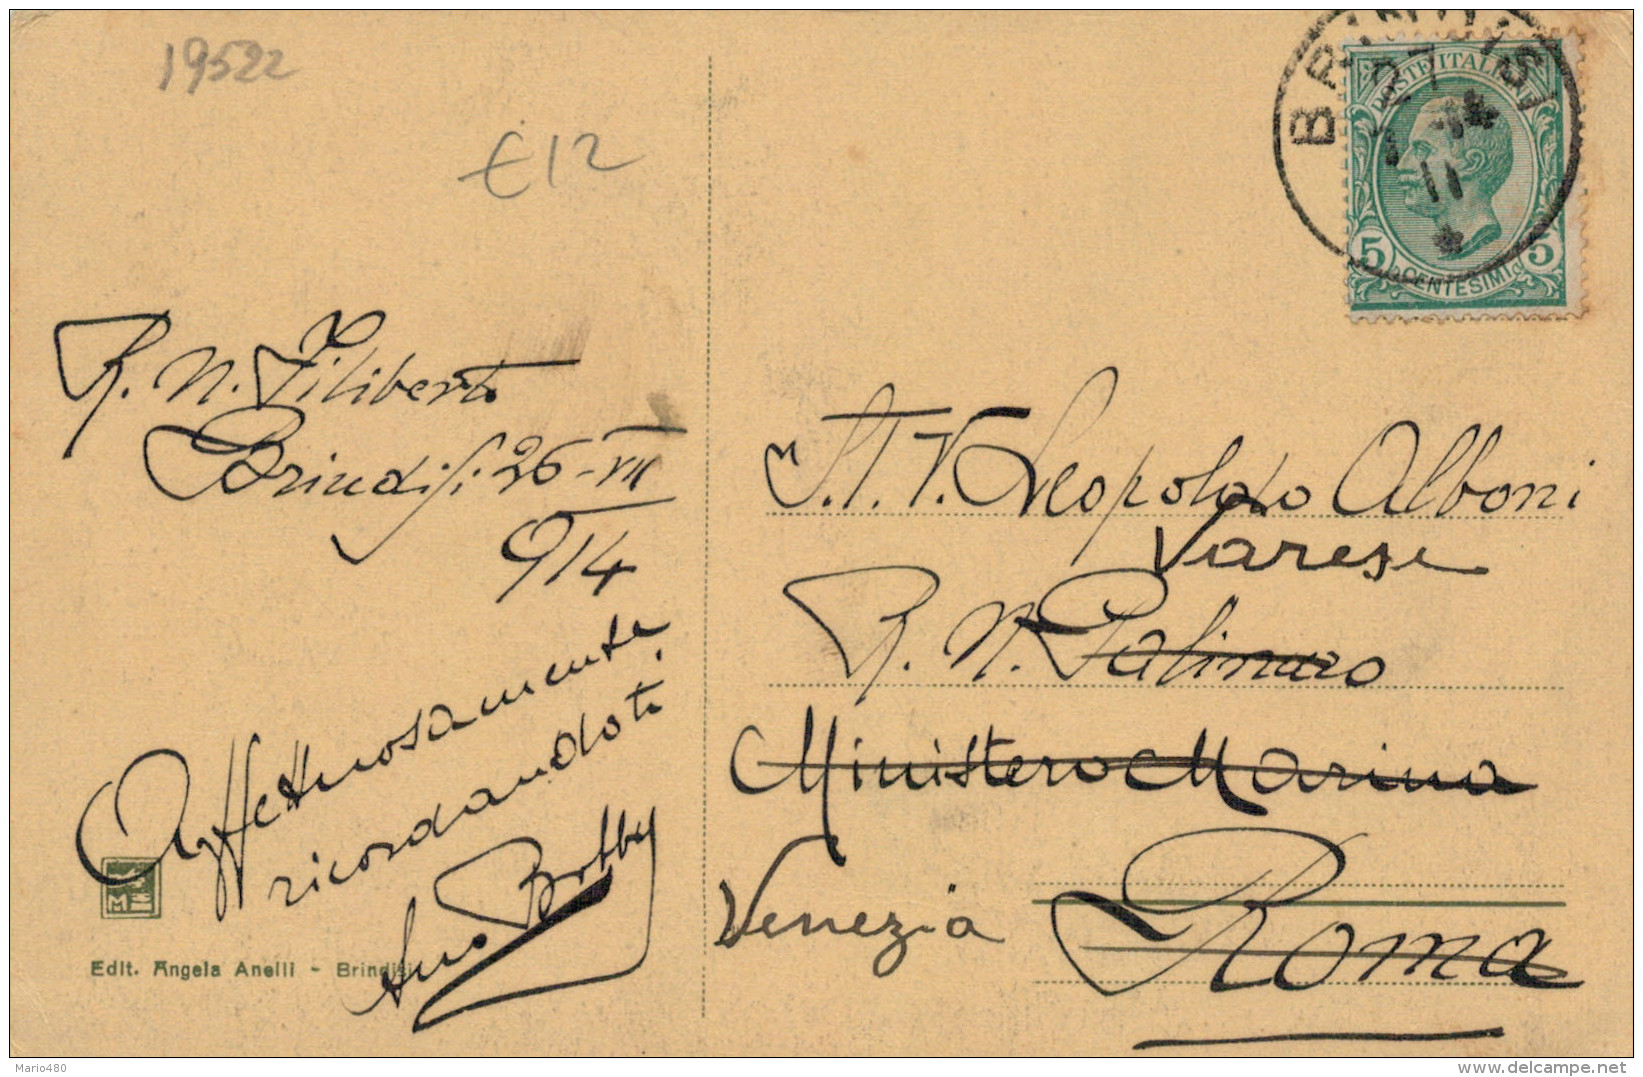 19522
€12
BRINDISI
27
11
POSTE ITALIANE
5 CENTESIMI 5
R. N. Filiberto
Brindisi: 26-VII
914
Affettuosamente
ricordandoti
Edit. Angela Anelli - Brindisi
S.T.V. Leopoldo Alboni
Varese
R. N. Palinuro
Ministero Marina
Venezia Roma
Mario480
delcampe.net